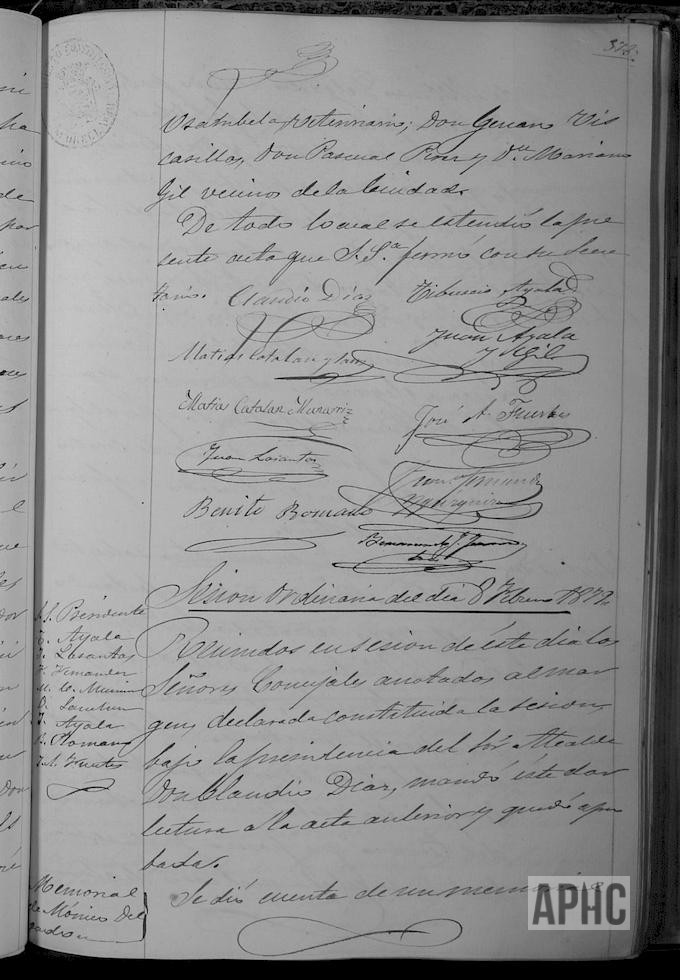 Usambela, Veterinario; Don Genaro Vis
casillas, Don Pascual Roz y Dn Mariano
Gil vecinos de la Ciudad.
De todo lo cual se estendió la pre
sente acta que S. Sa. firmó con su Secre
tario.
Claudio Diaz
Tiburcio Ayala
Juan Ayala
y Gil
Matias Catalan y
Matias Catalan Munarriz
José A. Fuertes
Juan Lasantas
Benito Romano
Sesion Ordinaria del dia 8 Febrero 1872.
S. Presidente
T. Ayala
J. Lasantas
F. Fernandez
M. C. Munarriz
J. Ayala
B. Romano
J. A. Fuertes
Reunidos en sesion de éste dia los
Señores Concejales anotados al mar
gen, declarada constituida la sesion,
bajo la presidencia del Sor Alcalde
Don Claudio Diaz, mandó éste dar
lectura al acta anterior y quedó apro
bada.
Memorial
de Mónico Del
Se dió cuenta de un memorial
APHC